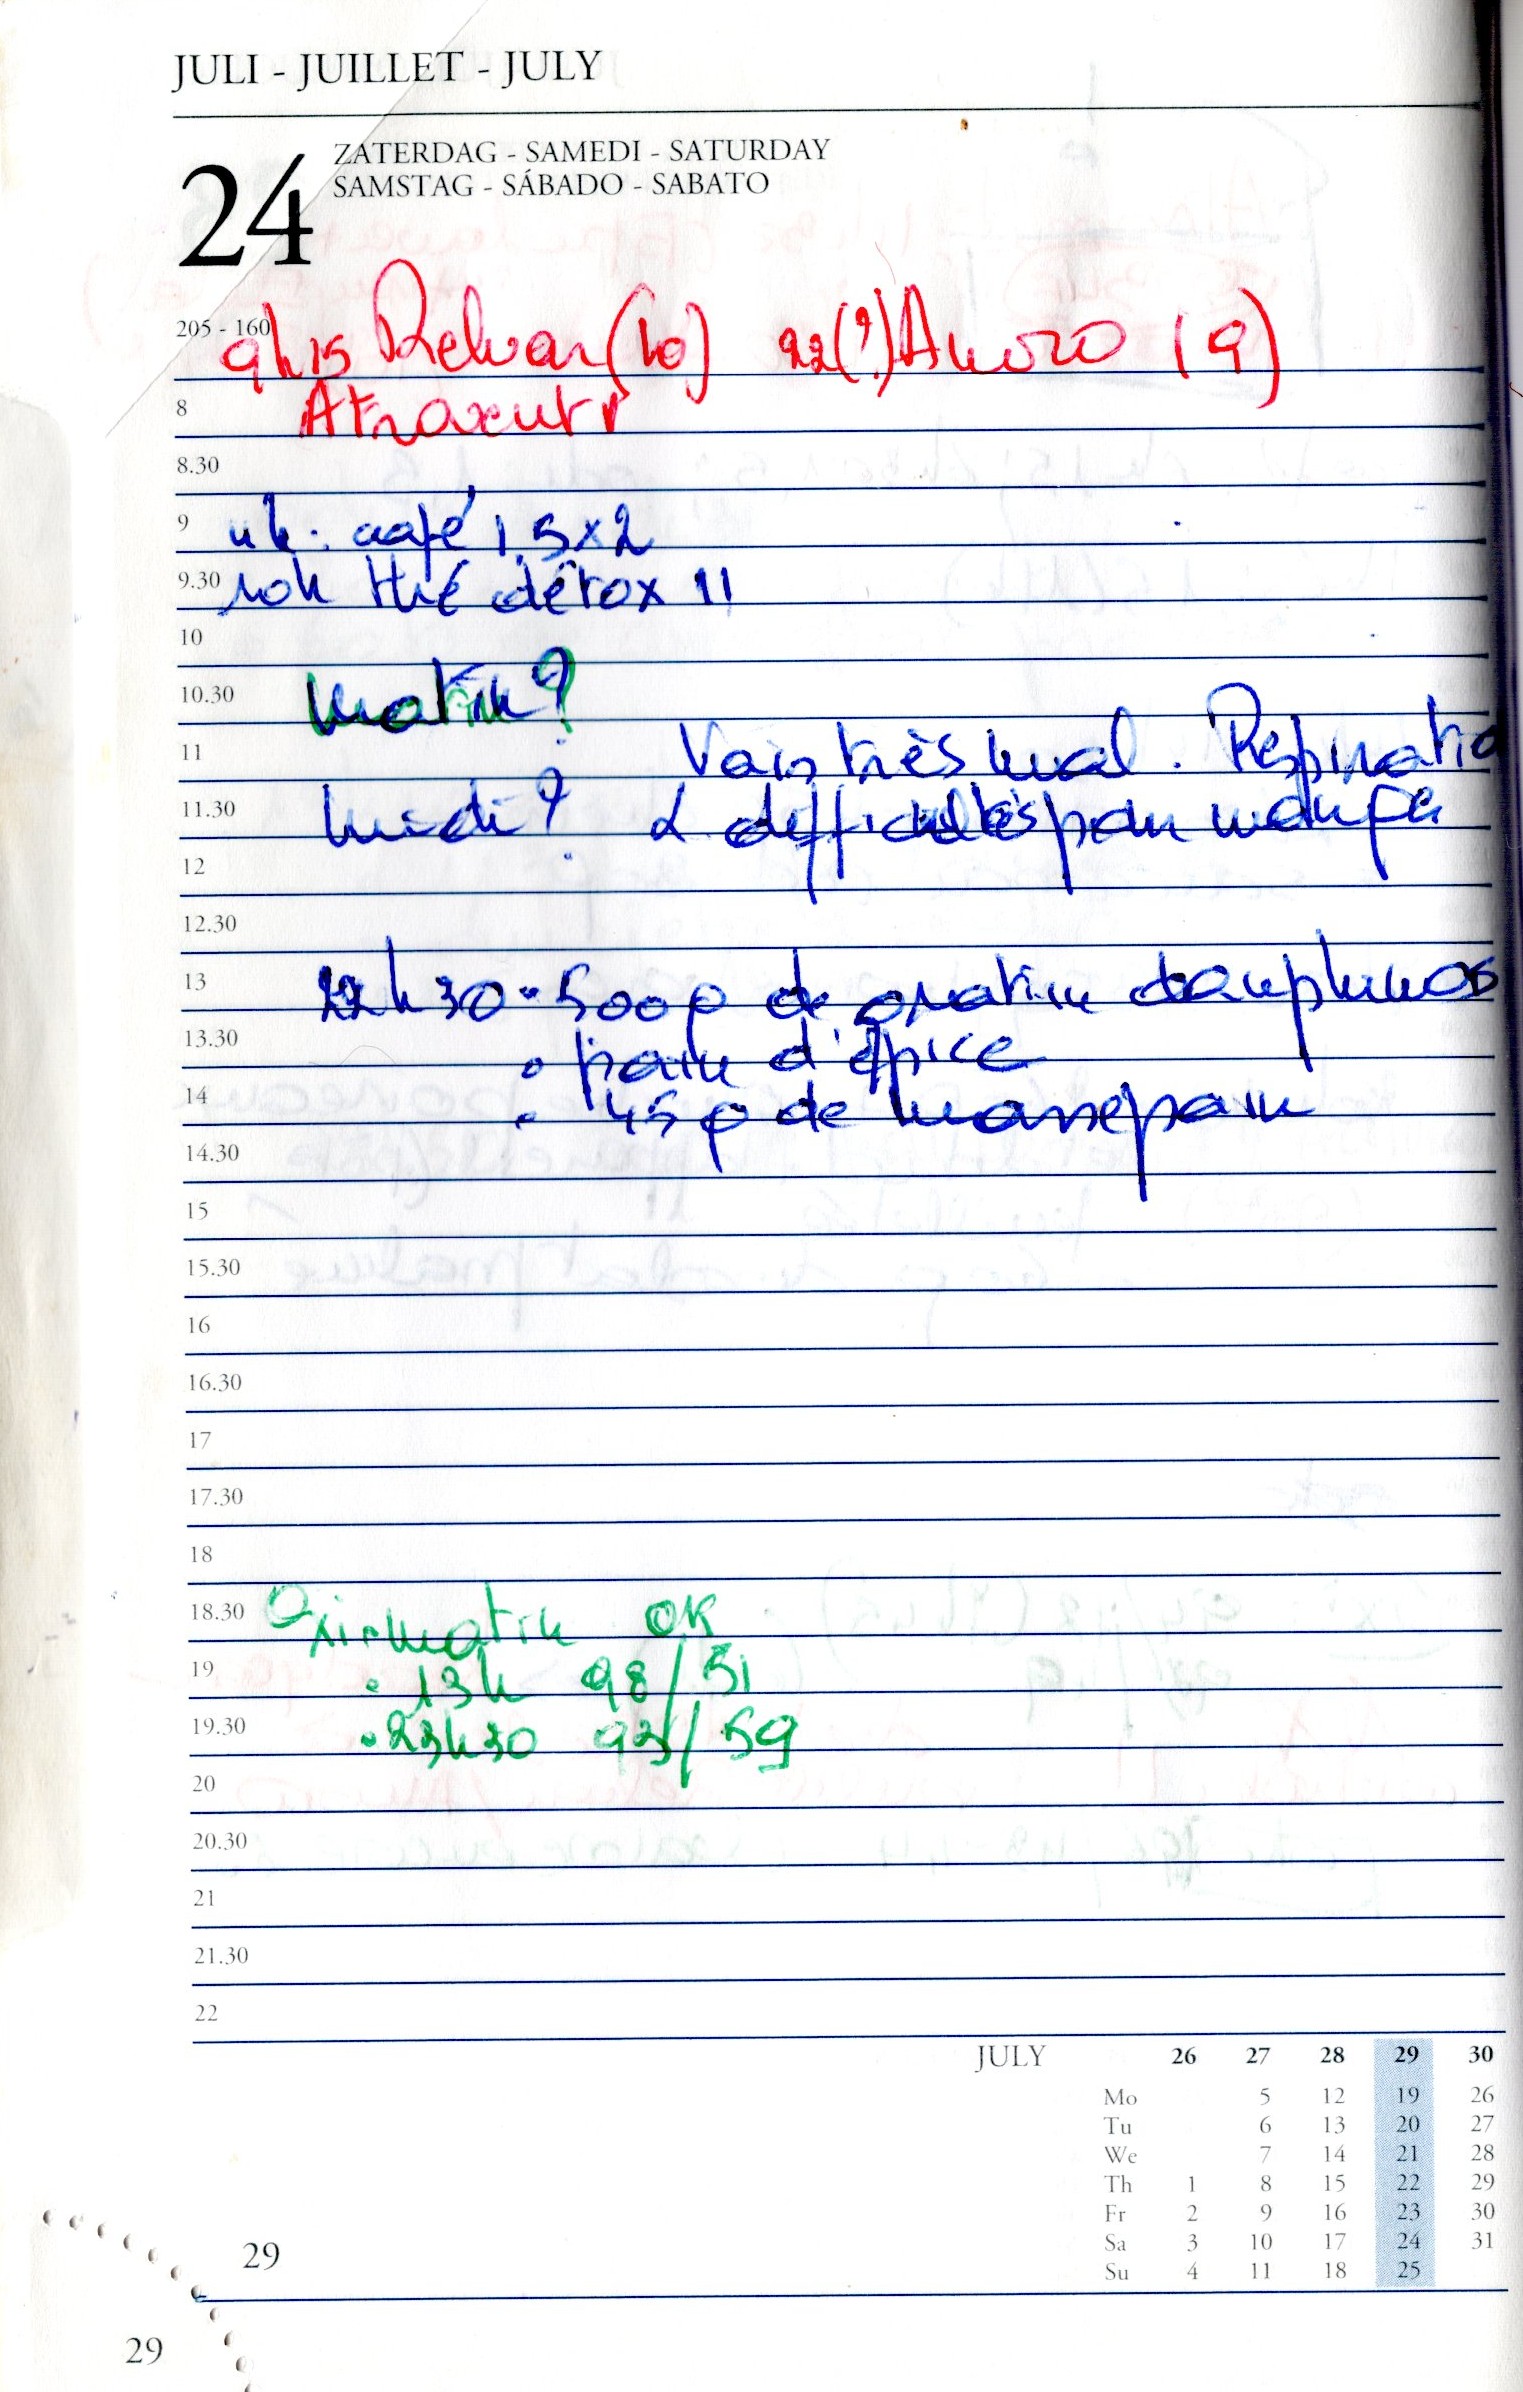 JULI - JUILLET - JULY
24
ZATERDAG - SAMEDI - SATURDAY
SAMSTAG - SÁBADO - SABATO
205 - 160
9h15 Relvar (10) 22(?) Anoro (9)
8
8.30
9 4h: café 1,5x2
9.30 10h thé détox 1l
10
10.30 Matin?
11 Vais très mal. Respiratio
11.30 Midi? difficultés pour manger
12
12.30
13 22h30 500g de gratin dauphinois
13.30 • pain d'épice
14 • 45g de massepain
14.30
15
15.30
16
16.30
17
17.30
18
18.30 OK
19 • 13h 98/51
19.30 • 23h30 93/59
20
20.30
21
21.30
22
JULY 26 27 28 29 30
Mo 5 12 19 26
Tu 6 13 20 27
We 7 14 21 28
Th 1 8 15 22 29
Fr 2 9 16 23 30
Sa 3 10 17 24 31
Su 4 11 18 25
29
29